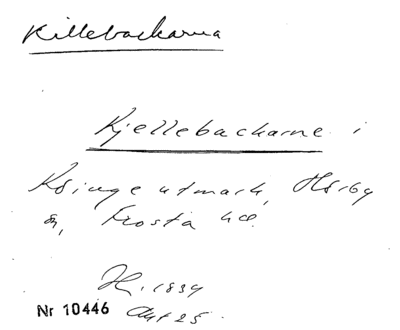 Killebackarna
Kjellebackarne i
Ksinge utmark, Hörby
sn, Frosta hd.
H. 1839
Nr 10446 Akt 25.